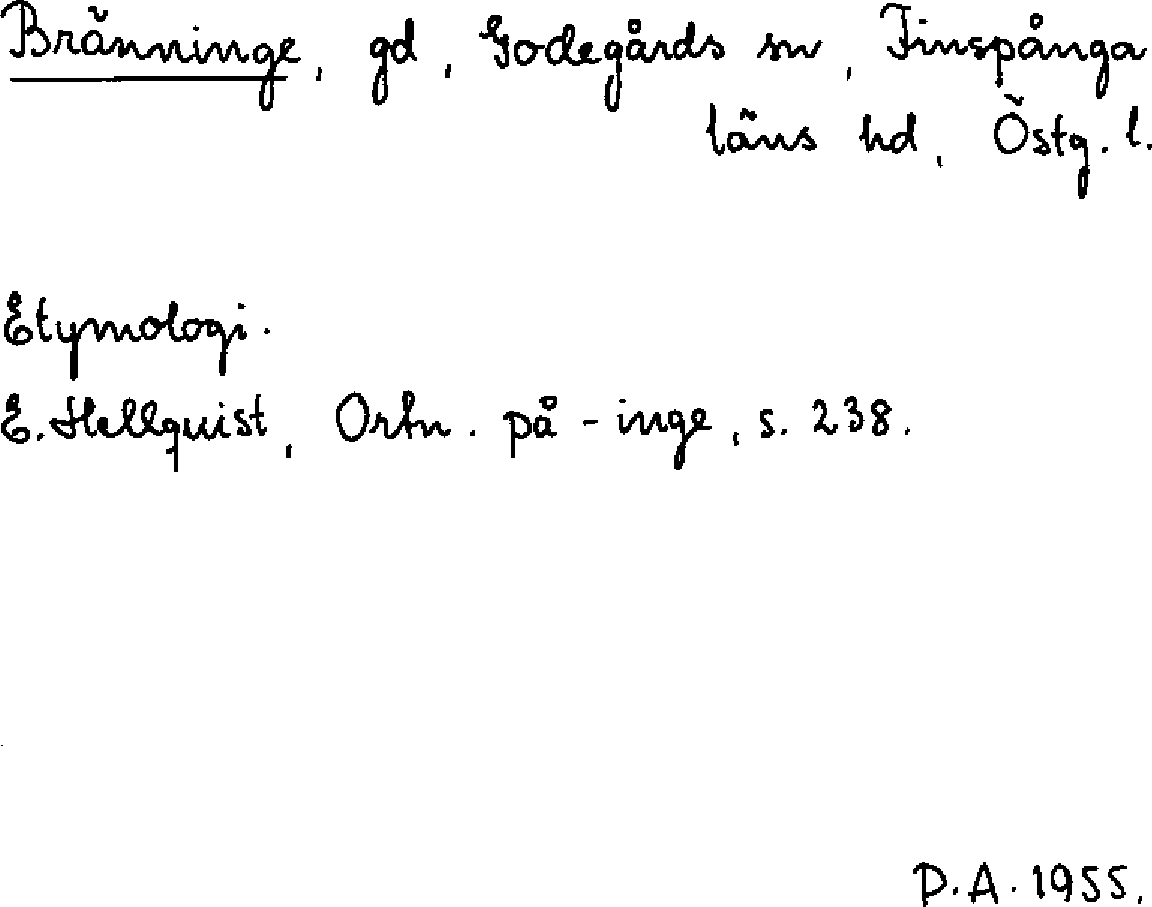 Bränninge, gd, Godegårds sn, Finspånga
läns hd, Östg. l.
Etymologi.
E. Hellquist, Ortn. på -inge, s. 238.
P.A. 1955.